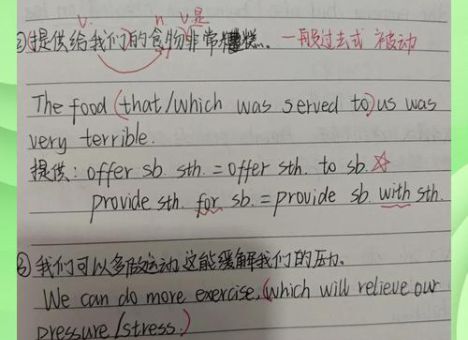 v. n. v是
②提供给我们的食物非常糟糕。一般过去式 被动
The food (that/which was served to) us was
very terrible.
提供: offer sb. sth. = offer sth. to sb. ☆
provide sth. for sb. = provide sb. with sth.
③我们可以多做运动,这能缓解我们的压力。
We can do more exercise, (which will relieve our
pressure/stress.)